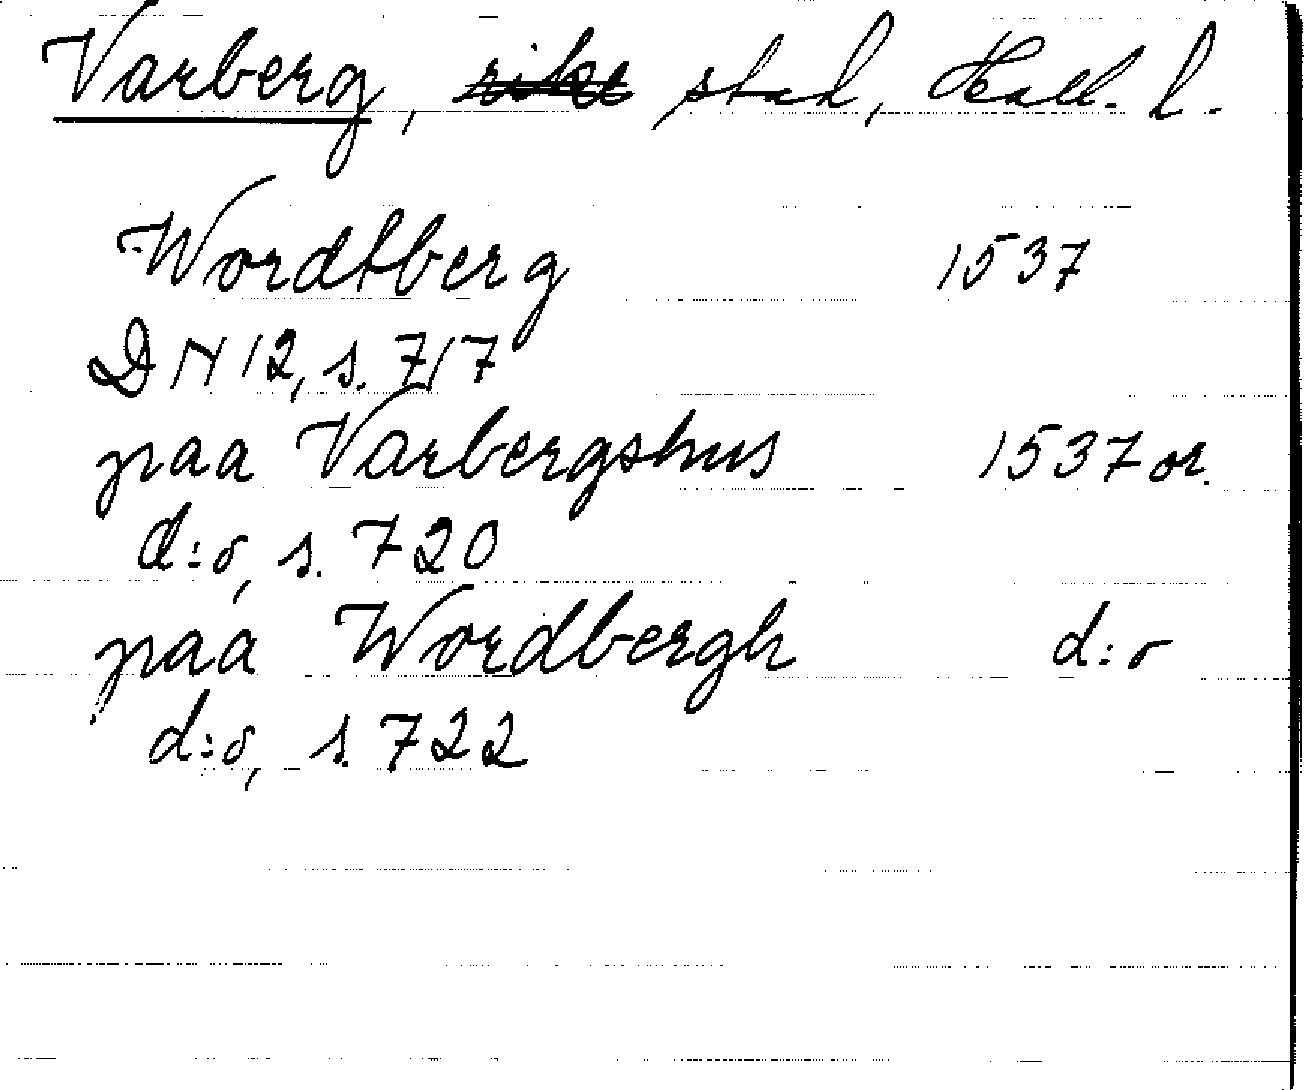 Varberg, rike stad, Hall. l.
Wordtberg 1537
DN 12, s. 717
paa Varbergshus 1537 or.
d:o, s. 720
paa Wordbergh d:o
d:o, s. 722